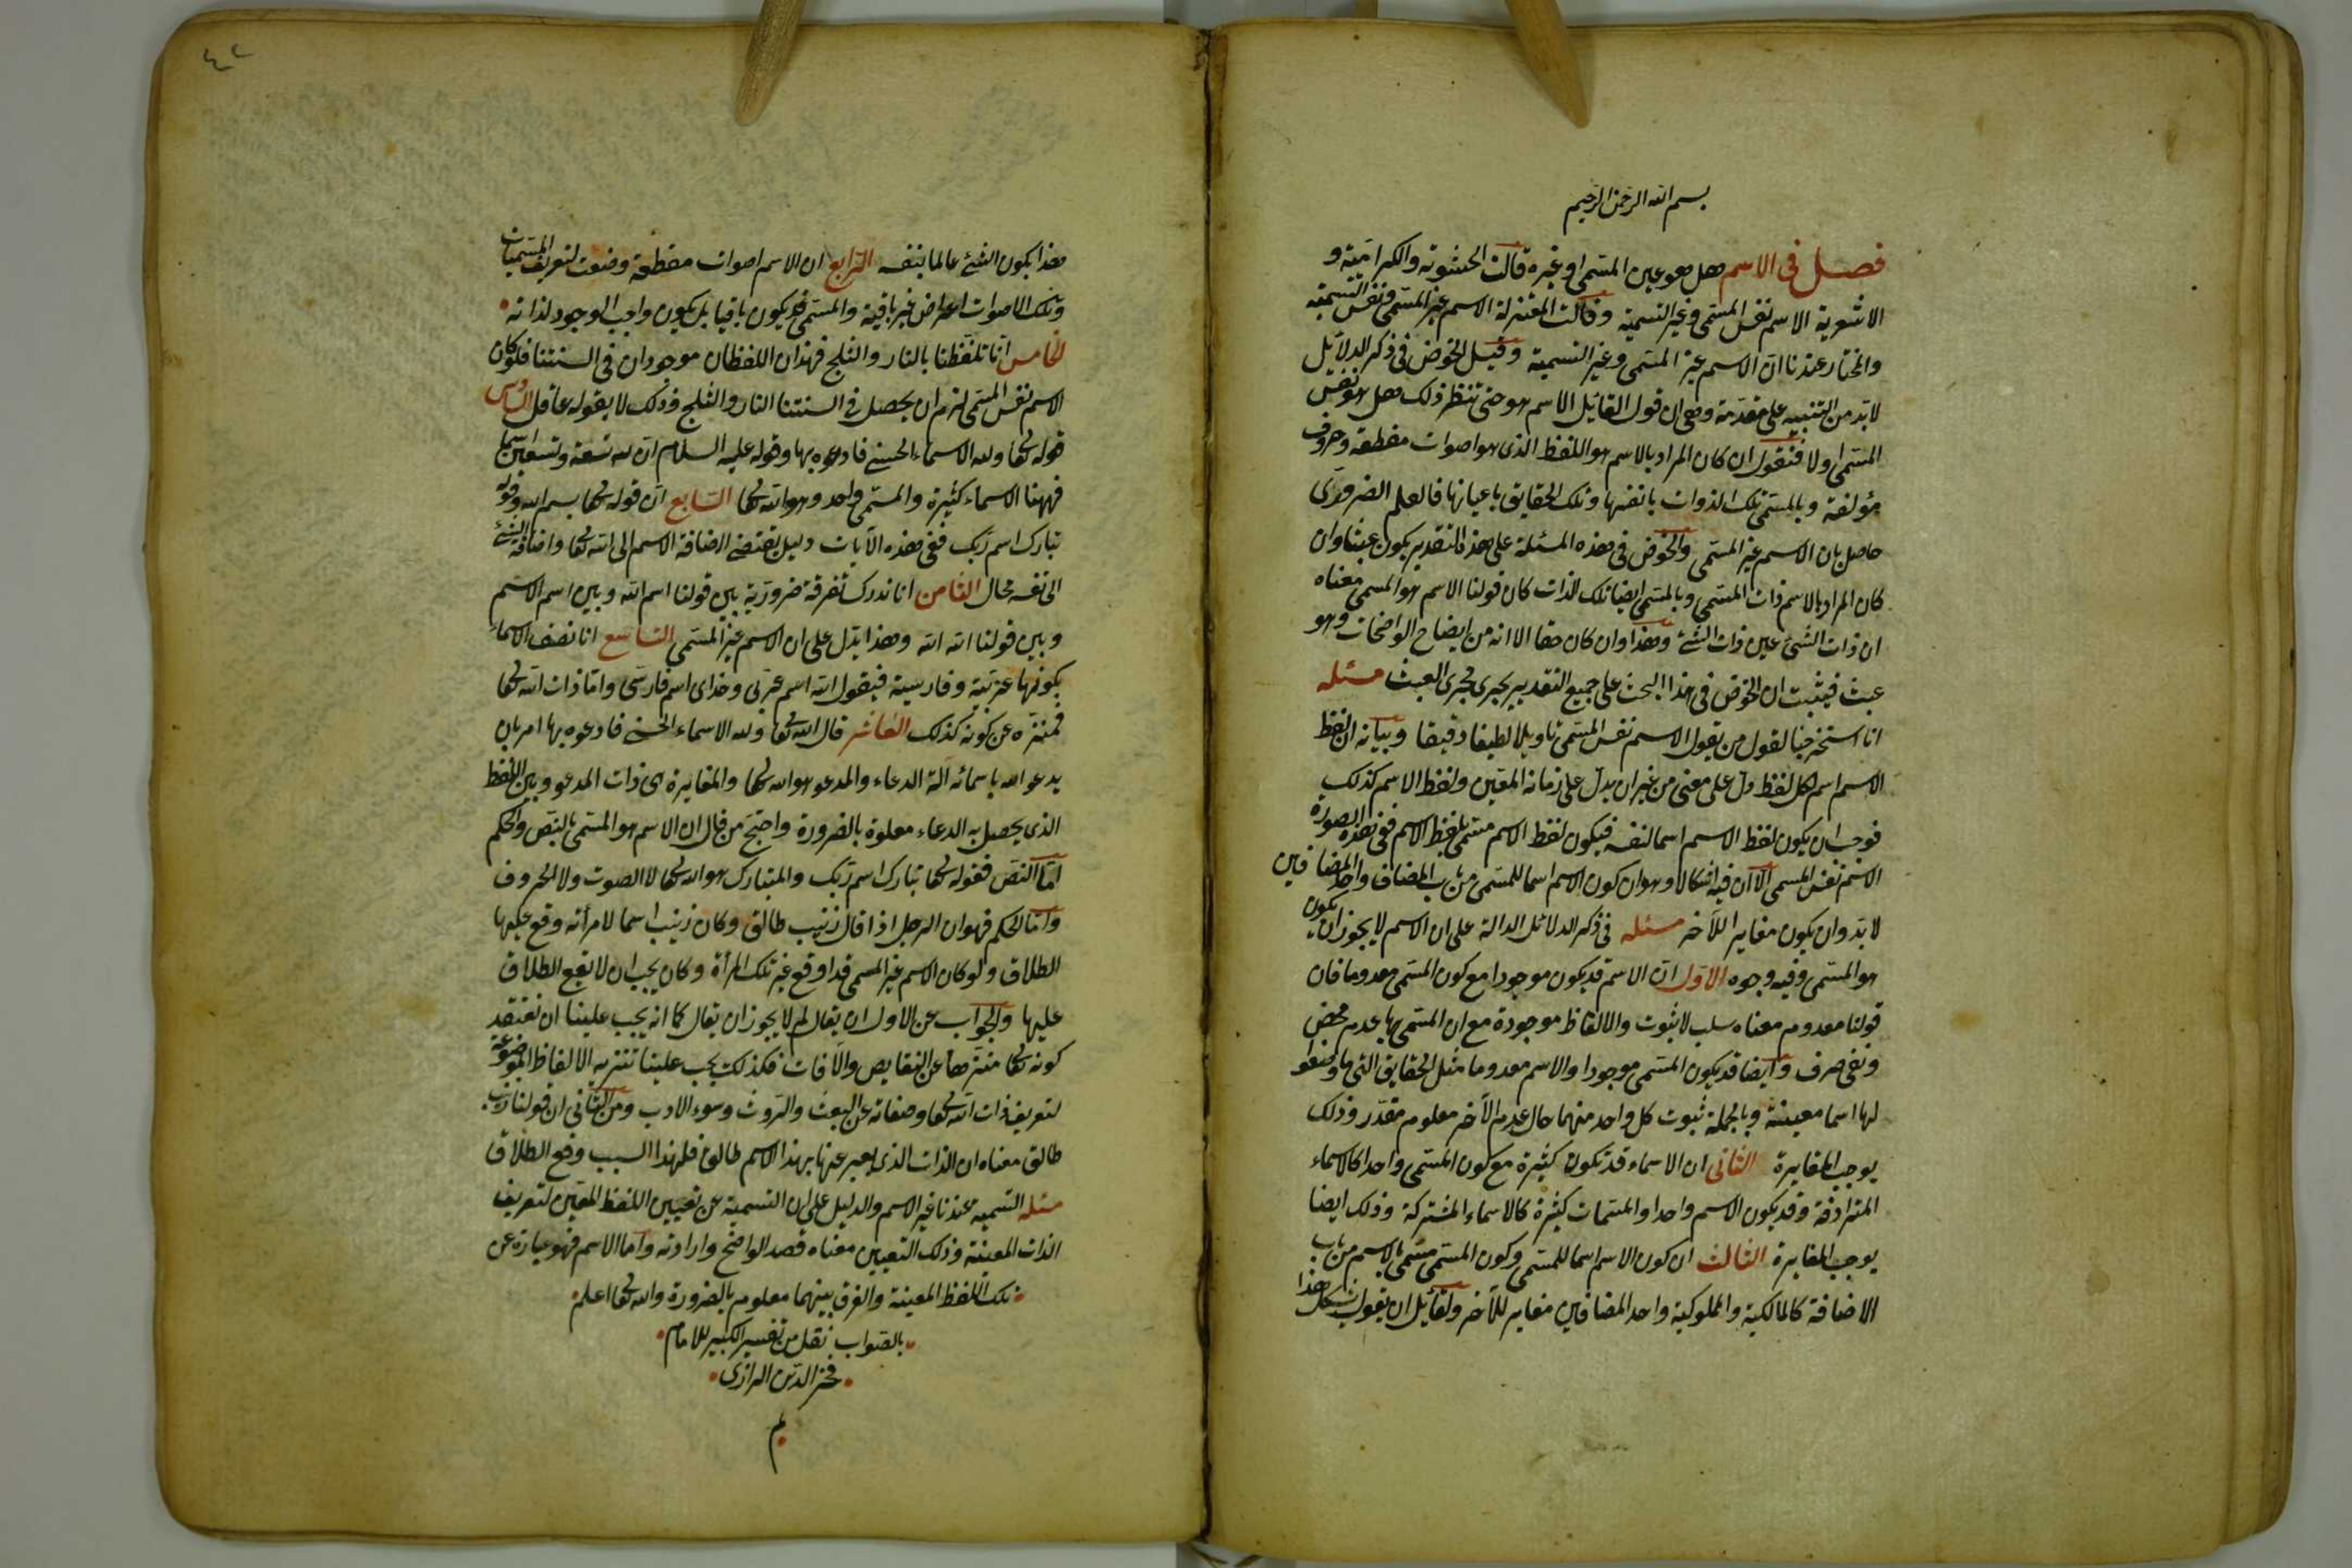 بسم الله الرحمن الرحيم
فصل في الاسم هل هو عين المسمى او غيره قالت الحشوية والكرامية و
الاشعرية الاسم نفس المسمى وغير التسمية وقالت المعتزلة الاسم غير المسمى ونفس التسمية
والمختار عندنا ان الاسم غير المسمى وغير التسمية وقبل الخوض في ذكر الدلائل
لا بد من التنبيه على مقدمة وهي ان قول القائل الاسم هو حتى تنظر ذلك هل هو نفس
المسمى اولا فنقول ان كان المراد بالاسم هو اللفظ الذى هو اصوات مقطعة وحروف
مؤلفة وبالمسمى تلك الذوات بانفسها وتلك الحقايق باعيانها فالعلم الضرورى
حاصل بان الاسم غير المسمى والخوض في هذه المسئلة على هذا التقدير يكون عبثا وان
كان المراد بالاسم ذات المسمى وبالمسمى ايضا تلك الذات كان قولنا الاسم هو المسمى معناه
ان ذات الشئ عين ذات الشئ وهذا وان كان حقا الا انه من ايضاح الواضحات وهو
عبث فيثبت ان الخوض في هذا البحث على جميع التقديرين يجرى مجرى العبث مسئله
انا استخرجنا لقول من يقول الاسم نفس المسمى تاويلا لطيفا دقيقا وبيانه ان لفظ
الاسم اسم لكل لفظ دل على معنى من غير ان يدل على زمانه المعين ولفظ الاسم كذلك
فوجب ان يكون لفظ الاسم اسما لنفسه فيكون لفظ الاسم مسمى بلفظ الاسم ففي هذه الصورة
الاسم نفس المسمى الا ان فيه اشكالا وهو ان كون الاسم اسما للمسمى من باب المضاف واحد المضافين
لا بد وان يكون مغايرا للآخر مسئله في ذكر الدلائل الدالة على ان الاسم لا يجوز ان يكون
هو المسمى وفيه وجوه الاول ان الاسم قد يكون موجودا مع كون المسمى معدوما فان
قولنا معدوم معناه سلب لا ثبوت والالفاظ موجودة مع ان المسمى بها عدم محض
ونفى صرف وايضا قد يكون المسمى موجودا والاسم معدوما مثل الحقايق التى ما وضعوا
لها اسما معينة وبالجملة ثبوت كل واحد منهما حال عدم الآخر معلوم مقدر وذلك
يوجب المغايرة الثانى ان الاسماء قد تكون كثيرة مع كون المسمى واحدا كالاسماء
المترادفة وقد يكون الاسم واحدا والمسميات كثيرة كالاسماء المشتركة وذلك ايضا
يوجب المغايرة الثالث ان كون الاسم اسما للمسمى وكون المسمى مسمى بالاسم من باب
الاضافة كالمالكية والمملوكية واحد المضافين مغاير للآخر ولقائل ان يقول يشكل هذا
هذا بكون الشئ عالما بنفسه الرابع ان الاسم اصوات مقطعة وضعت لتعريف المسميات
وتلك الاصوات اعراض غير باقية والمسمى قد يكون باقيا بل يكون واجب الوجود لذاته
الخامس انا تلفظنا بالنار والثلج فهذان اللفظان موجودان في السنتنا فلو كان
الاسم نفس المسمى لزم ان يحصل في السنتنا النار والثلج وذلك لا يقوله عاقل السادس
قوله تعا ولله الاسماء الحسنى فادعوه بها وقوله عليه السلام ان لله تسعة وتسعين اسما
فههنا الاسماء كثيرة والمسمى واحد وهو الله تعا السابع ان قوله تعا بسم الله وقوله
تبارك اسم ربك ففي هذه الآيات دليل يقتضى اضافة الاسم الى الله تعا واضافة الشئ
الى نفسه محال الثامن انا ندرك تفرقة ضرورية بين قولنا اسم الله وبين اسم الاسم
وبين قولنا الله الله وهذا يدل على ان الاسم غير المسمى التاسع انا نصف الاسماء
بكونها عربية وفارسية فيقول الله اسم عربى وخداى اسم فارسى واما ذات الله تعا
فمنزه عن كونه كذلك العاشر قال الله تعا ولله الاسماء الحسنى فادعوه بها امر بان
يدعو الله باسمائه آلة الدعاء والمدعو هو الله تعا والمغايرة ى ذات المدعو وبين اللفظ
الذى يحصل به الدعاء معلوة بالضرورة واحتج من قال ان الاسم هو المسمى بالنص والحكم
اما النص فقوله تعا تبارك اسم ربك والمتبارك هو الله تعا لا الصوت ولا الحروف
واما الحكم فهو ان الرجل اذا قال زينب طالق وكان زينب اسما لامرأته وقع عليها
الطلاق ولو كان الاسم غير المسمى قد اوقع غير تلك المرأة وكان يجب ان لا تقع الطلاق
عليها والجواب عن الاول ان يقال لم لا يجوز ان يقال كما انه يجب علينا ان نعتقد
كونه تعا منزها عن النقايص والآفات فكذلك يجب علينا تنزيه الالفاظ الموضوعة
لتعريف ذات الله تعا وصفاته عن العبث والروث وسوء الادب ومن الثانى ان قولنا زينب
طالق معناه ان الذات الذى يعبر عنها بهذا الاسم طالق فلهذا السبب وقع الطلاق
مسئله التسمية عندنا غير الاسم والدليل على ان التسمية عن تعيين اللفظ المعين لتعريف
الذات المعينة وذلك التعيين معناه قصد الواضح وارادته واما الاسم فهو عبارة عن
تلك اللفظ المعينة والفرق بينهما معلوم بالضرورة والله تعا اعلم
بالصواب نقل من تفسير الكبير للامام
فخر الدين الرازى
تم